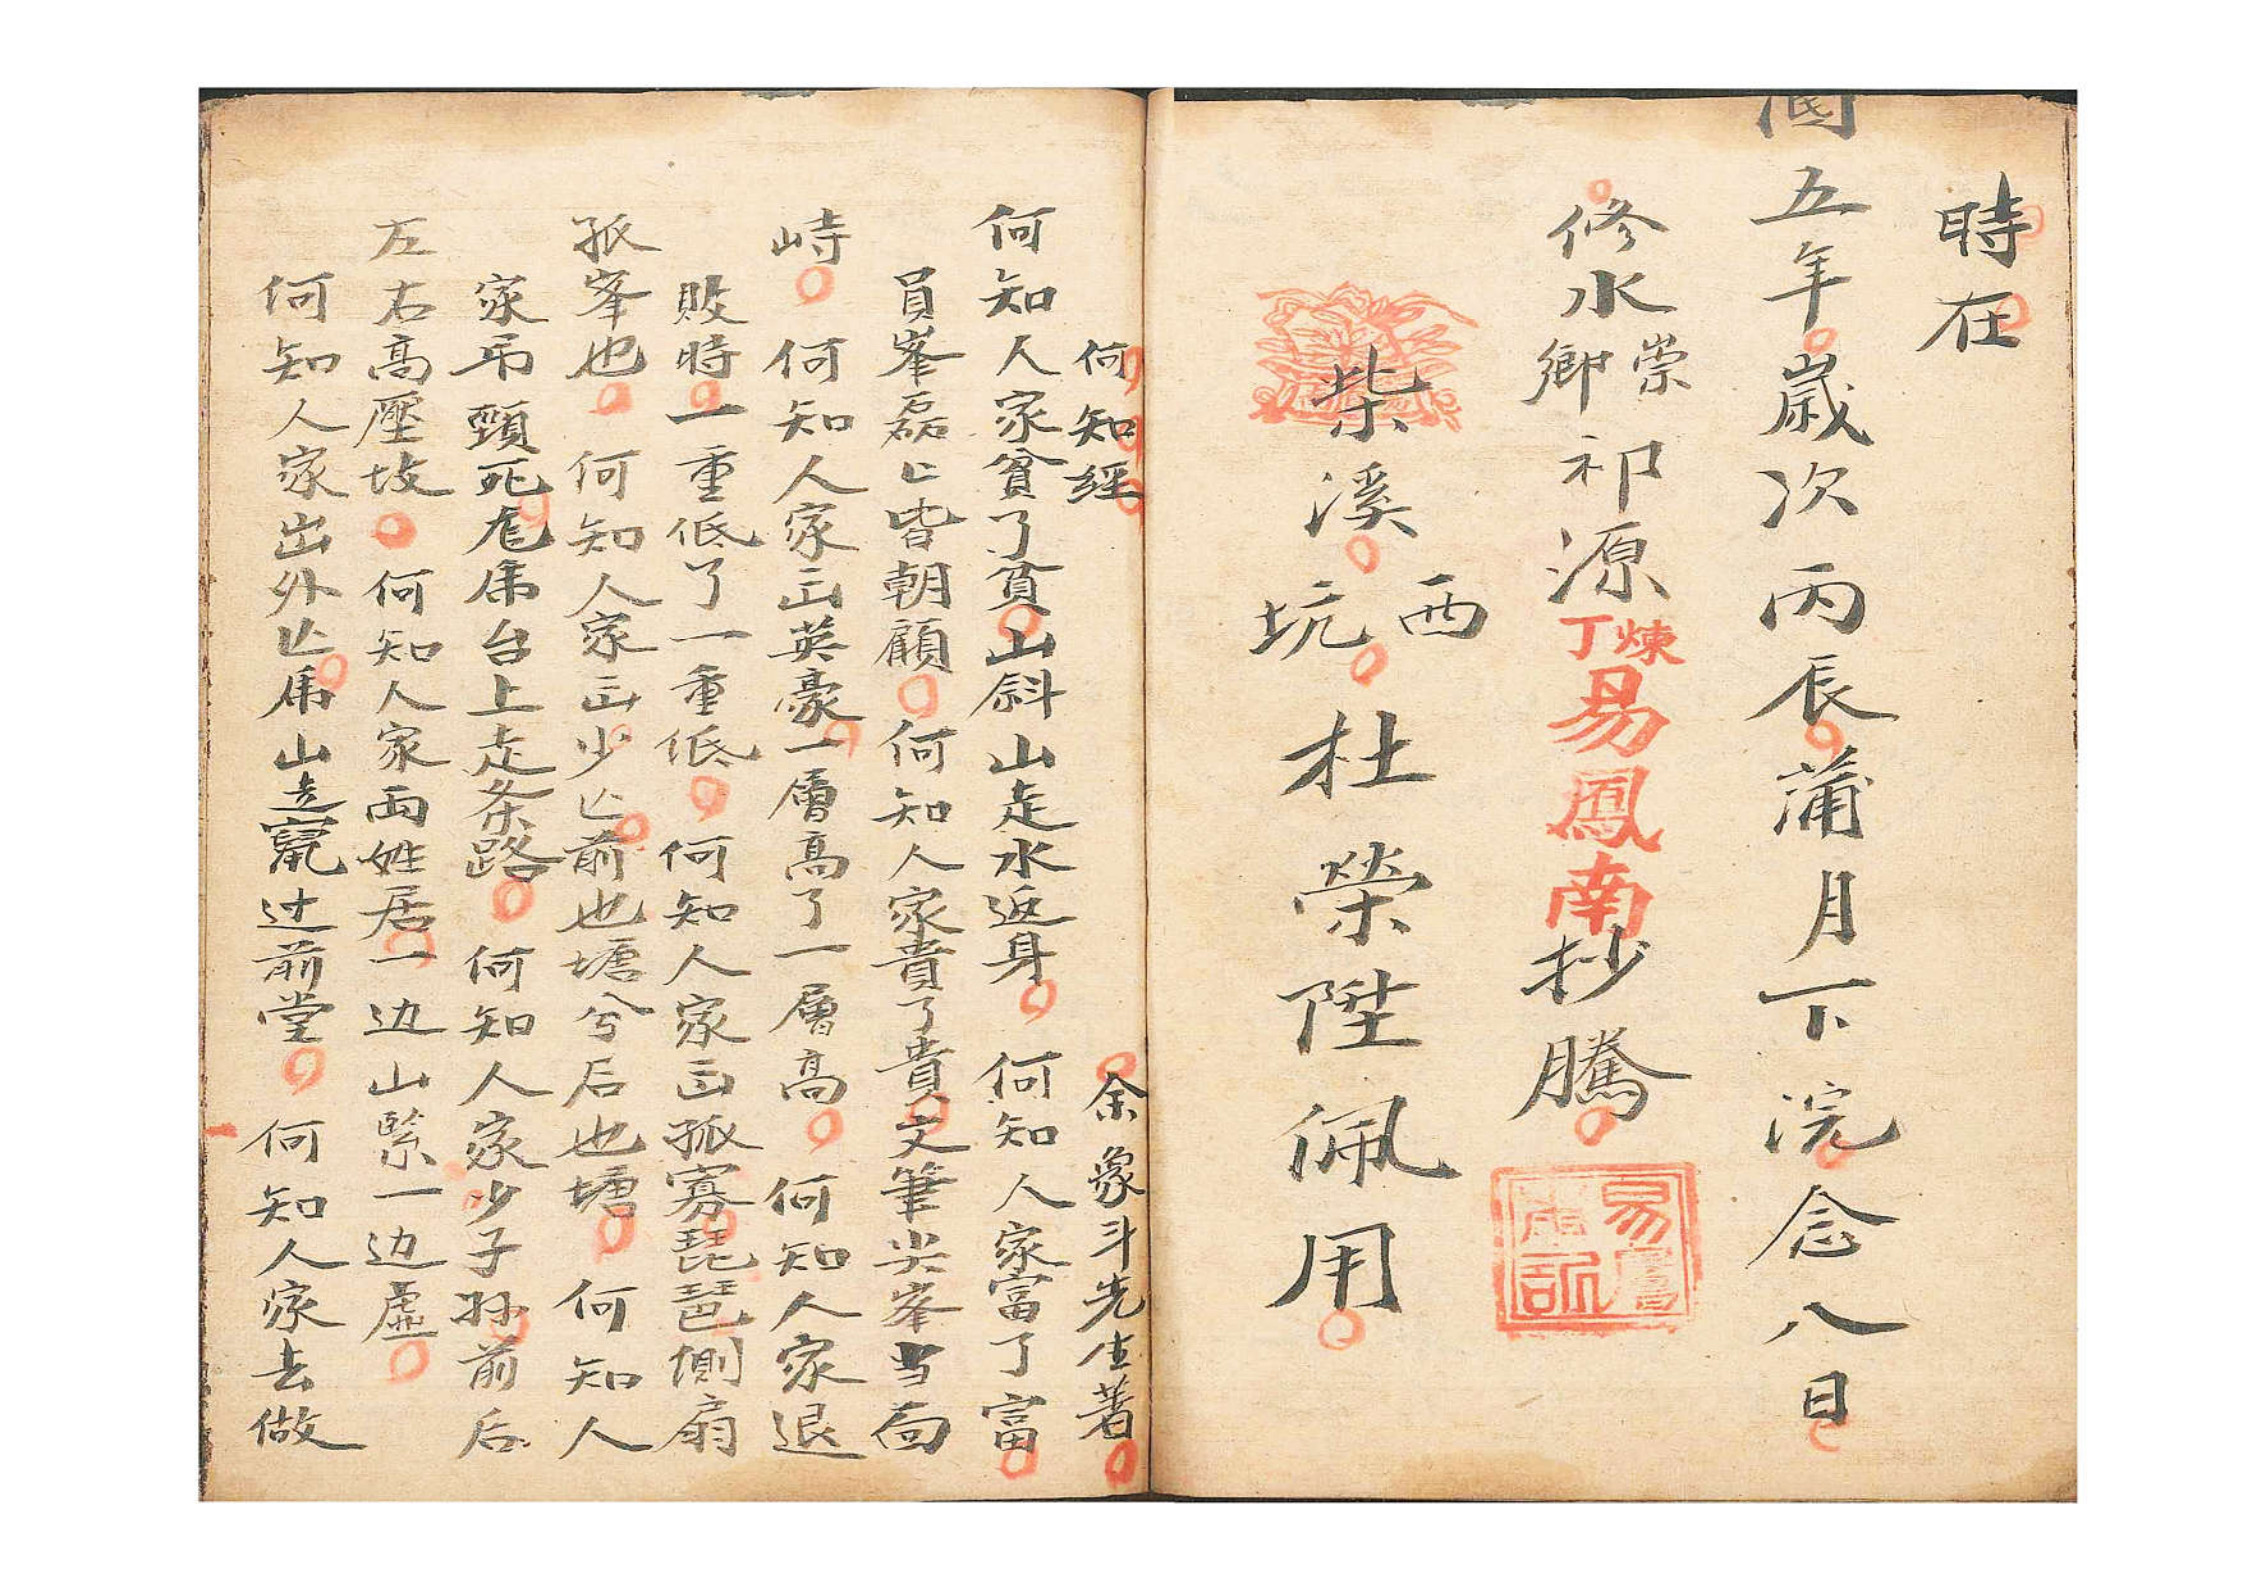 時在
國五年歲次丙辰蒲月下浣念八日
修水崇鄉祁源丁煉易鳳南抄騰
柴溪西坑杜榮陞佩用
何知經 余象斗先生著
何知人家貧了貧山斜山走水返身何知人家富了富
員峯磊匕皆朝顧何知人家貴了貴文筆尖峯当向
峙何知人家出英豪一層高了一層高何知人家退
敗時一重低了一重低何知人家出孤寡琵琶側扇
孤峯也何知人家出少亡前也塘兮后也塘何知人
家吊頸死龙虎台上走条路何知人家少子孙前后
左右高壓坟何知人家両姓居一边山緊一边虛
何知人家出外亡虎山走竄过前堂何知人家去做